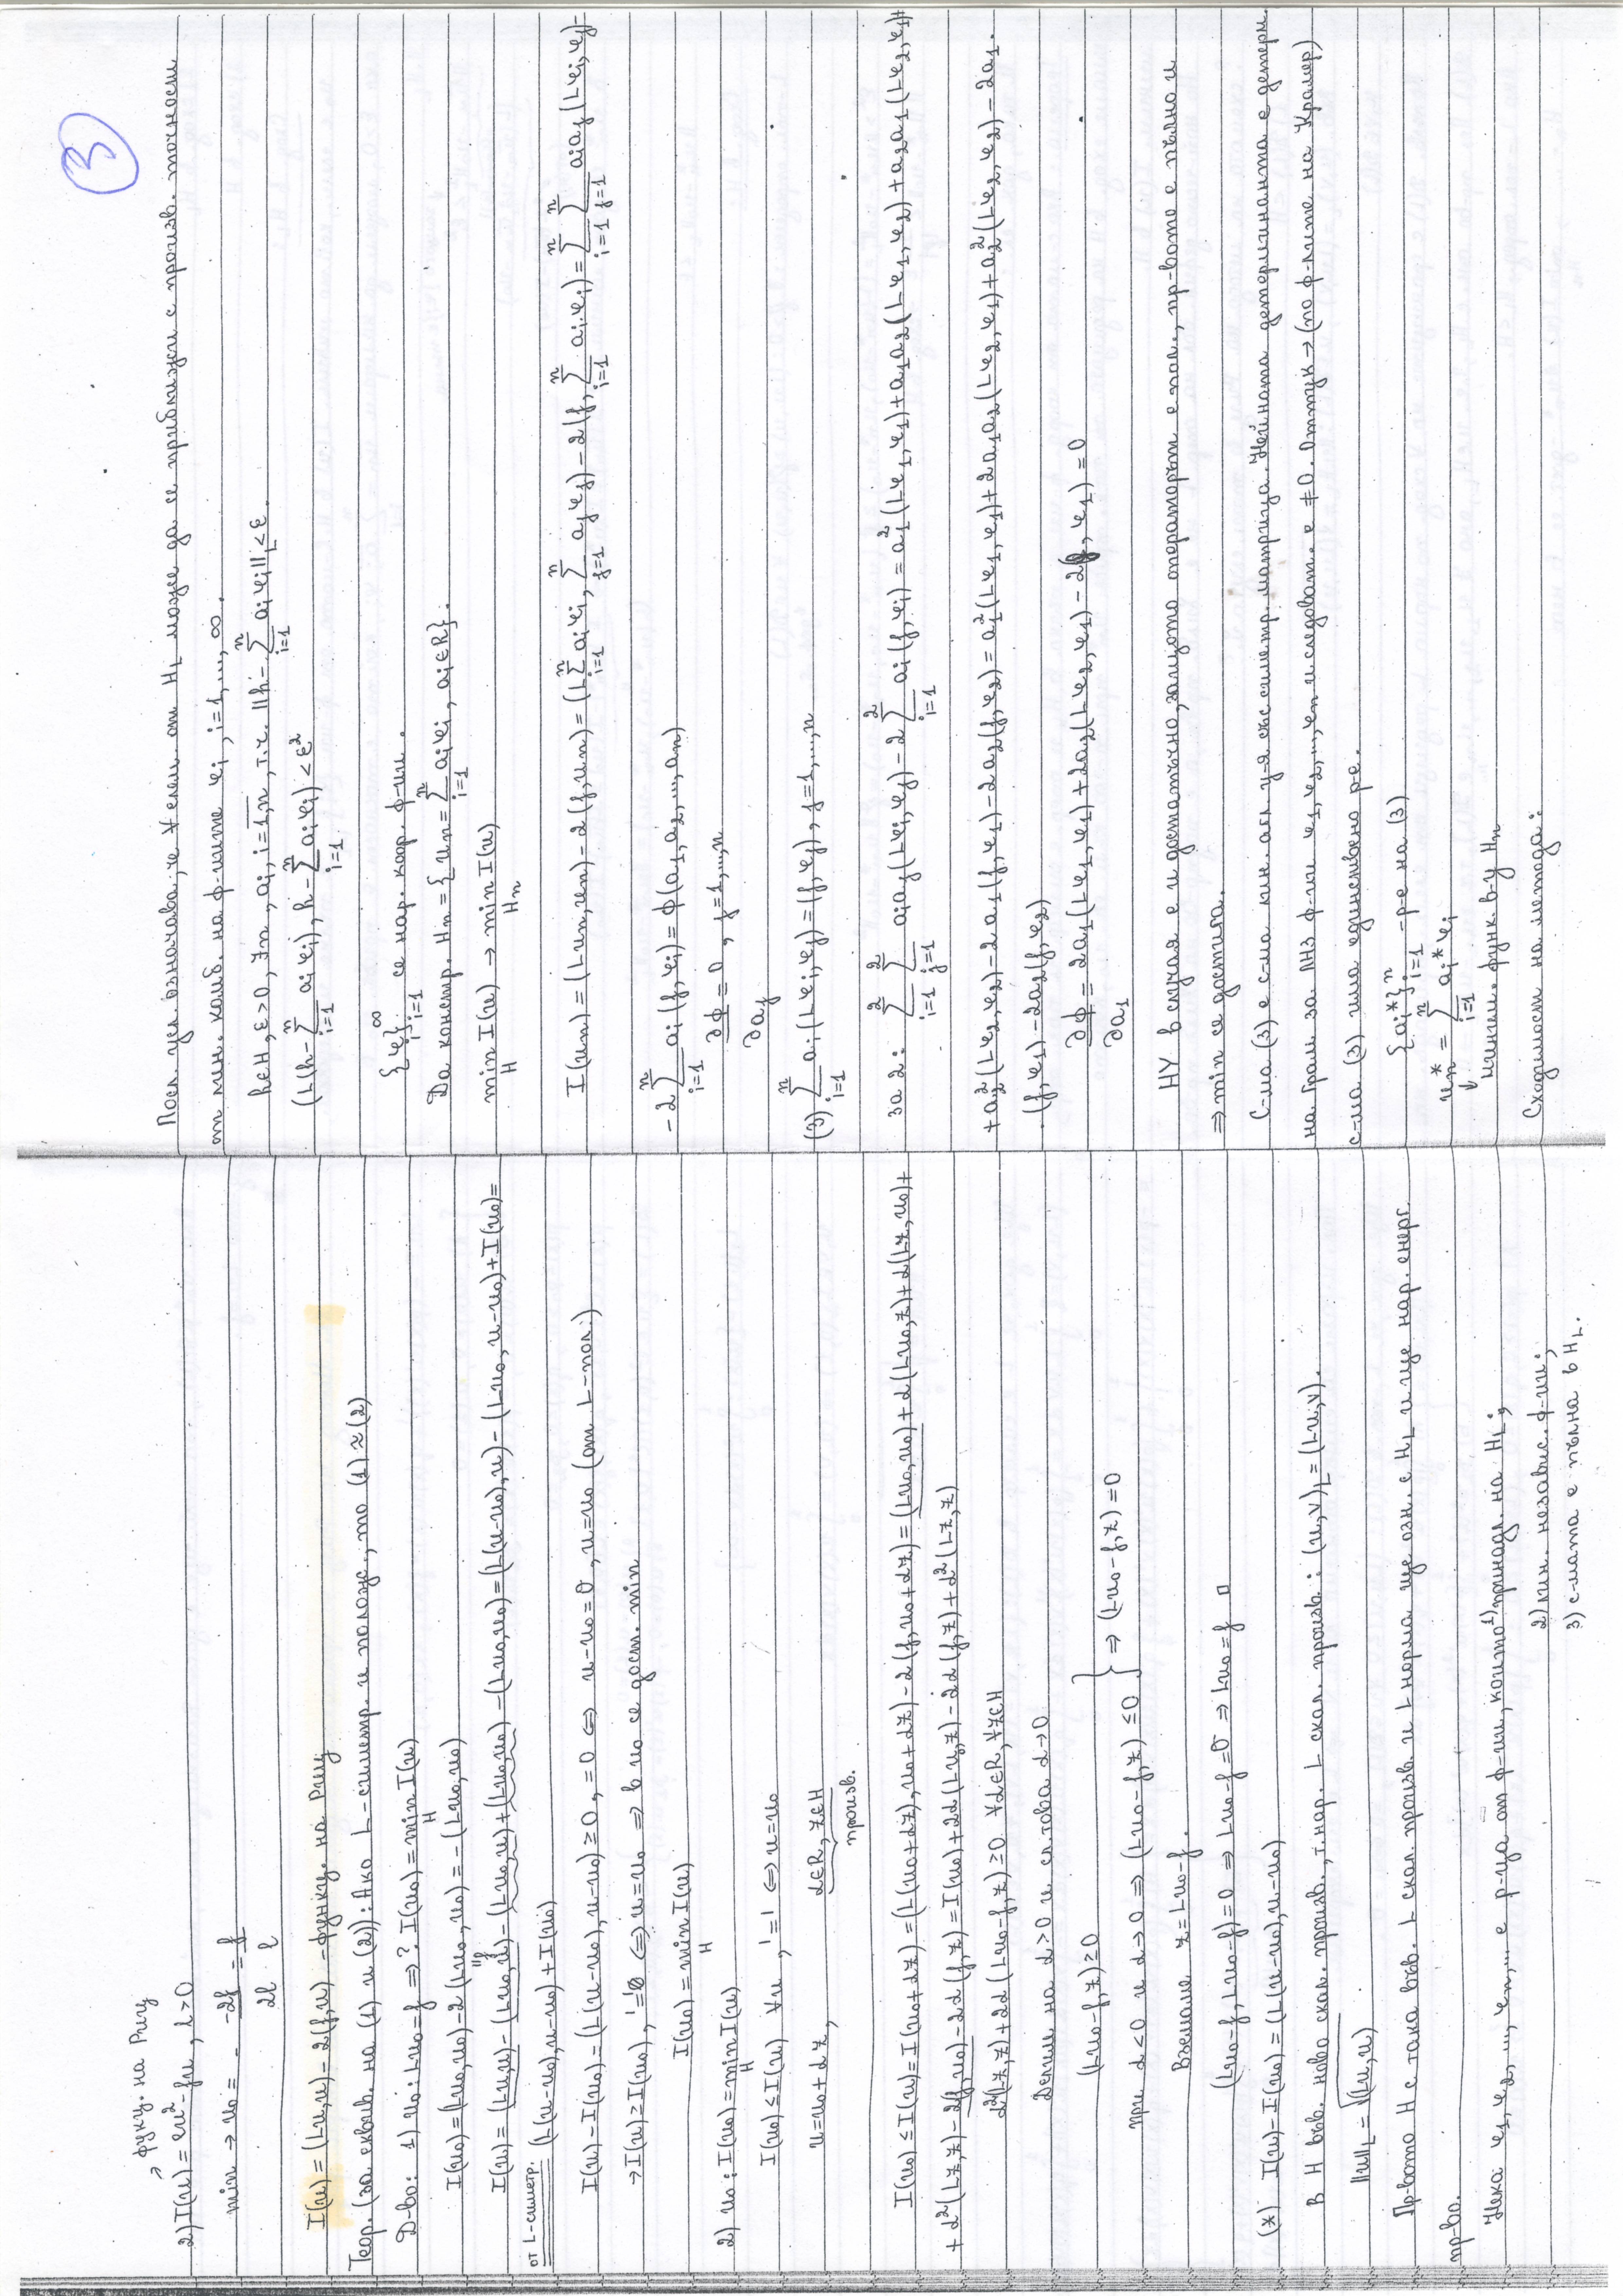 → функц. на Риц
2) I(u) = lu² - fu, l>0
min → u₀ = - -2f/2l = f/l
I(u) = (Lu,u) - 2(f,u) - функц. на Риц
Теор. (за еквив. на (1) и (2)): Ако L-симетр. и полож., то (1) ≈ (2)
Д-во: 1) u₀: Lu₀ = f ⇒? I(u₀) = min_H I(u)
I(u₀) = (Lu₀,u₀) - 2(Lu₀,u₀) = -(Lu₀,u₀)
I(u) = (Lu,u) - (Lu₀,u) - (Lu₀,u) + (Lu₀,u₀) - (Lu₀,u₀) = (L(u-u₀),u) - (Lu₀,u-u₀) + I(u₀) =
от L-симетр. = (L(u-u₀),u-u₀) + I(u₀)
I(u) - I(u₀) = (L(u-u₀),u-u₀) ≥ 0, =0 ⇔ u-u₀=0, u=u₀ (от L-пол.)
→ I(u) ≥ I(u₀), '=' ⇔ u=u₀ ⇒ в u₀ се дост. min
I(u₀) = min_H I(u)
2) u₀: I(u₀) = min_H I(u)
I(u₀) ≤ I(u) ∀u, '=' ⇔ u=u₀
u = u₀ + αz, α∈R, z∈H
произв.
I(u₀) ≤ I(u) = I(u₀+αz) = (L(u₀+αz),u₀+αz) - 2(f,u₀+αz) = (Lu₀,u₀) + α(Lu₀,z) + α(Lz,u₀) +
+ α²(Lz,z) - 2(f,u₀) - 2α(f,z) = I(u₀) + 2α(Lu₀,z) - 2α(f,z) + α²(Lz,z)
α²(Lz,z) + 2α(Lu₀-f,z) ≥ 0 ∀α∈R, ∀z∈H
Делим на α>0 и сл. това α→0
(Lu₀-f,z) ≥ 0
при α<0 и α→0 ⇒ (Lu₀-f,z) ≤ 0 } ⇒ (Lu₀-f,z) = 0
Вземаме z = Lu₀-f.
(Lu₀-f,Lu₀-f) = 0 ⇒ Lu₀-f = 0 ⇒ Lu₀ = f □
(*) I(u) - I(u₀) = (L(u-u₀),u-u₀)
В H във. ново скал. произв., т.нар. L скал. произв.: (u,v)_L = (Lu,v).
||u||_L = √(Lu,u)
Пр-вото H с така във. L скал. произв. и L норма ще озн. с H_L и ще нар. енерг.
пр-во.
Нека φ₁,φ₂,...,φₙ,... е р-ца от ф-ии, които 1) принадл. на H_L;
2) лин. независ. ф-ии;
3) с-мата е пълна в H_L.
3
Посл. усл. означава, че ∀ елем. от H_L може да се приближи с произв. точност
от лин. комб. на ф-иите φᵢ, i=1,...,∞.
h∈H, ε>0, ∃n, aᵢ, i=1,n, т.ч. ||h - Σⁿᵢ₌₁ aᵢφᵢ||_L < ε.
(L(h - Σⁿᵢ₌₁ aᵢφᵢ), h - Σⁿᵢ₌₁ aᵢφᵢ) < ε²
{φᵢ}^∞ᵢ₌₁ се нар. коор. ф-ии.
Да констр. Hₙ = {uₙ = Σⁿᵢ₌₁ aᵢφᵢ, aᵢ∈R}.
min_H I(u) → min_Hₙ I(u)
I(uₙ) = (Luₙ,uₙ) - 2(f,uₙ) = (LΣⁿᵢ₌₁ aᵢφᵢ, Σⁿⱼ₌₁ aⱼφⱼ) - 2(f, Σⁿᵢ₌₁ aᵢφᵢ) = Σⁿᵢ₌₁ Σⁿⱼ₌₁ aᵢaⱼ(Lφᵢ,φⱼ) -
- 2 Σⁿᵢ₌₁ aᵢ(f,φᵢ) = Φ(a₁,a₂,...,aₙ)
∂Φ/∂aⱼ = 0, j=1,...,n
(3) Σⁿᵢ₌₁ aᵢ(Lφᵢ,φⱼ) = (f,φⱼ), j=1,...,n
за 2: Σ²ᵢ₌₁ Σ²ⱼ₌₁ aᵢaⱼ(Lφᵢ,φⱼ) - 2 Σ²ᵢ₌₁ aᵢ(f,φᵢ) = a₁²(Lφ₁,φ₁) + a₁a₂(Lφ₁,φ₂) + a₂a₁(Lφ₂,φ₁) +
+ a₂²(Lφ₂,φ₂) - 2a₁(f,φ₁) - 2a₂(f,φ₂) = a₁²(Lφ₁,φ₁) + 2a₁a₂(Lφ₂,φ₁) + a₂²(Lφ₂,φ₂) - 2a₁.
.(f,φ₁) - 2a₂(f,φ₂)
∂Φ/∂a₁ = 2a₁(Lφ₁,φ₁) + 2a₂(Lφ₂,φ₁) - 2(f,φ₁) = 0
НУ в случая е и достатъчно, защото операторът е пол., пр-вото е пълно и
⇒ min се достига.
С-ма (3) е с-ма лин. алг. у-я със симетр. матрица. Нейната детерминанта е детерм.
на Грам за ЛНЗ ф-ии φ₁,φ₂,...,φₙ и следоват. е ≠0. Оттук → (по ф-лите на Крамер)
с-ма (3) има единствено р-е.
{aᵢ*}ⁿᵢ₌₁ - р-е на (3)
uₙ* = Σⁿᵢ₌₁ aᵢ*φᵢ
↓
миним. функ. в-у Hₙ
Сходимост на метода: